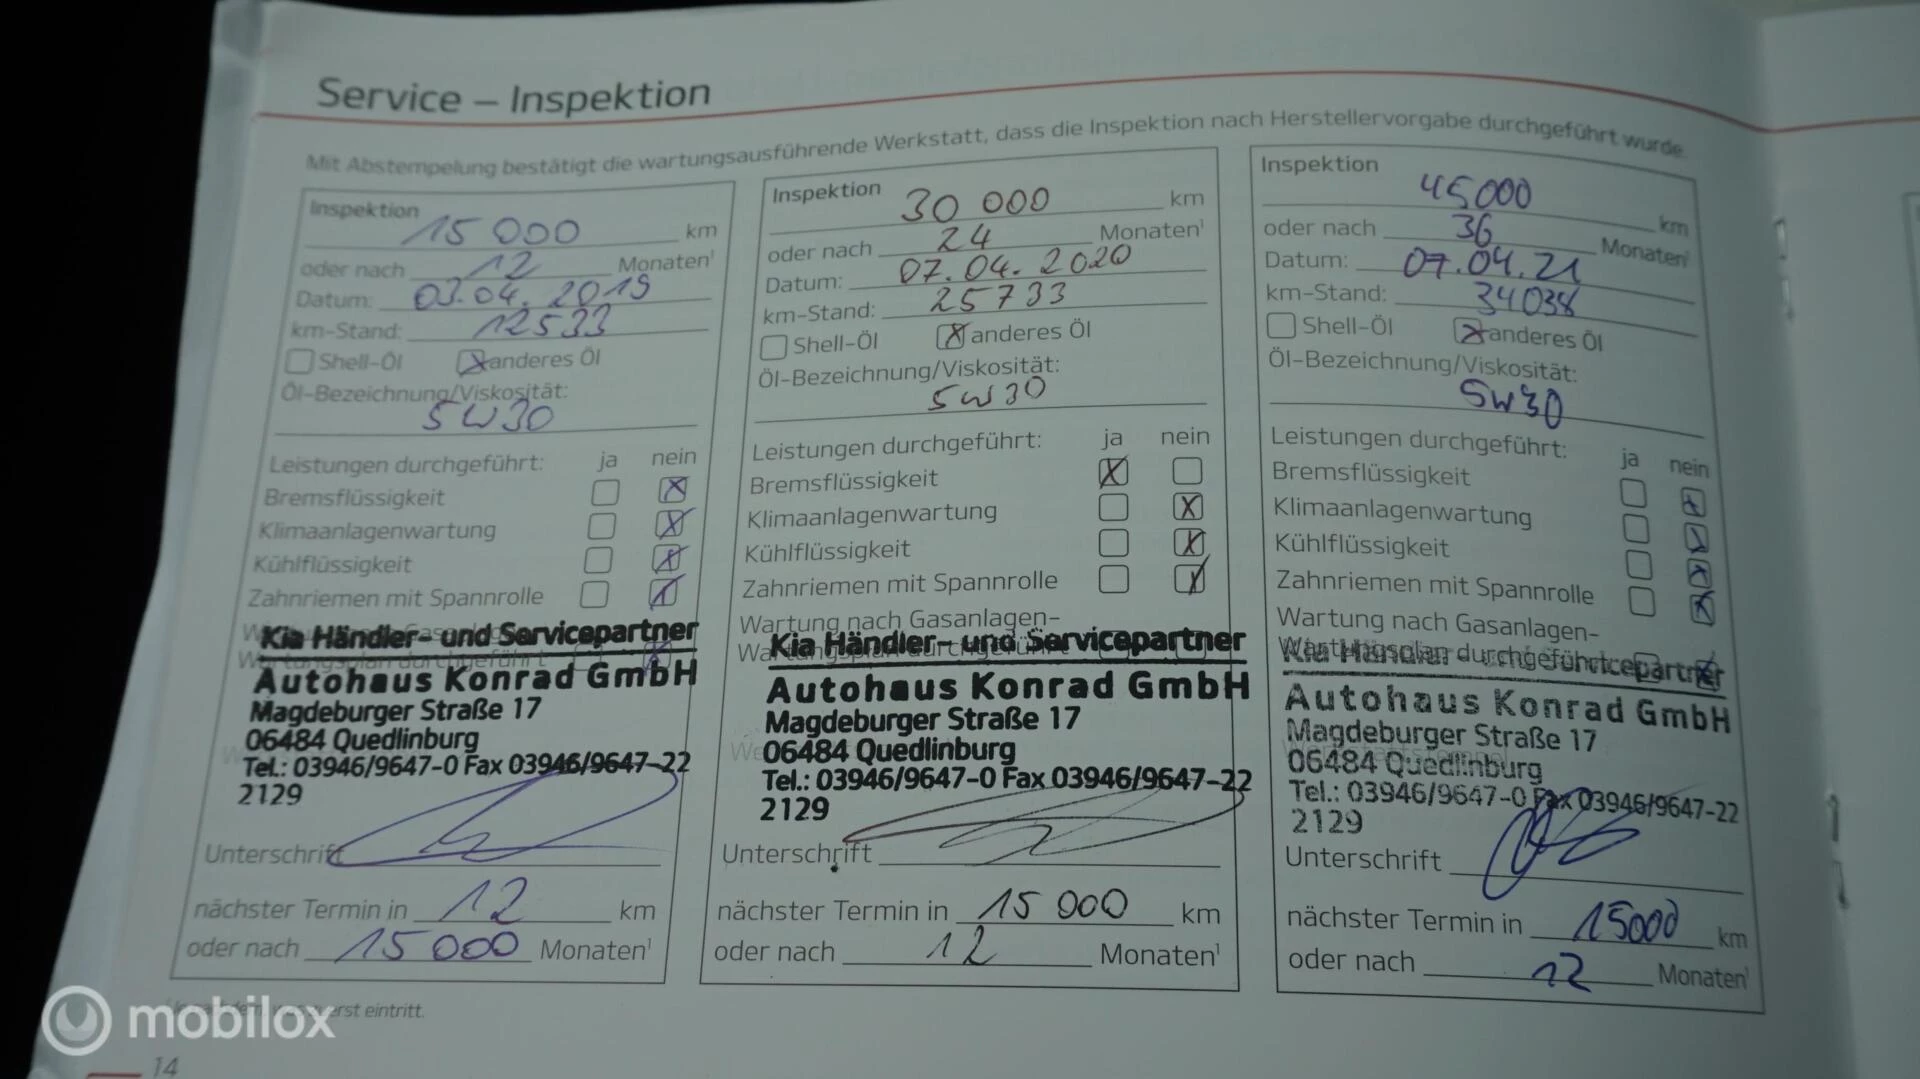 Service – Inspektion
Mit Abstempelung bestätigt die wartungsausführende Werkstatt, dass die Inspektion nach Herstellervorgabe durchgeführt wurde.
Inspektion 15 000 km
oder nach 12 Monaten¹
Datum: 03.04.2019
km-Stand: 12533
Shell-Öl x anderes Öl
Öl-Bezeichnung/Viskosität:
5W30
Leistungen durchgeführt: ja nein
Bremsflüssigkeit x
Klimaanlagenwartung x
Kühlflüssigkeit x
Zahnriemen mit Spannrolle x
Wartungsplan durchgeführt
Kia Händler- und Servicepartner
Autohaus Konrad GmbH
Magdeburger Straße 17
06484 Quedlinburg
Tel.: 03946/9647-0 Fax 03946/9647-22
2129
Unterschrift
nächster Termin in 12 km
oder nach 15 000 Monaten¹
Inspektion 30 000 km
oder nach 24 Monaten¹
Datum: 07.04.2020
km-Stand: 25733
Shell-Öl x anderes Öl
Öl-Bezeichnung/Viskosität:
5W30
Leistungen durchgeführt: ja nein
Bremsflüssigkeit x
Klimaanlagenwartung x
Kühlflüssigkeit x
Zahnriemen mit Spannrolle x
Wartung nach Gasanlagen-
Wartungsplan durchgeführt
Kia Händler- und Servicepartner
Autohaus Konrad GmbH
Magdeburger Straße 17
06484 Quedlinburg
Tel.: 03946/9647-0 Fax 03946/9647-22
2129
Unterschrift
nächster Termin in 15 000 km
oder nach 12 Monaten¹
Inspektion 45000 km
oder nach 36 Monaten¹
Datum: 07.04.21
km-Stand: 34038
Shell-Öl x anderes Öl
Öl-Bezeichnung/Viskosität:
5W30
Leistungen durchgeführt: ja nein
Bremsflüssigkeit x
Klimaanlagenwartung x
Kühlflüssigkeit x
Zahnriemen mit Spannrolle x
Wartung nach Gasanlagen-
Wartungsplan durchgeführt x
Kia Händler- und Servicepartner
Autohaus Konrad GmbH
Magdeburger Straße 17
06484 Quedlinburg
Tel.: 03946/9647-0 Fax 03946/9647-22
2129
Unterschrift
nächster Termin in 15000 km
oder nach 12 Monaten¹
eintritt.
mobilox
14